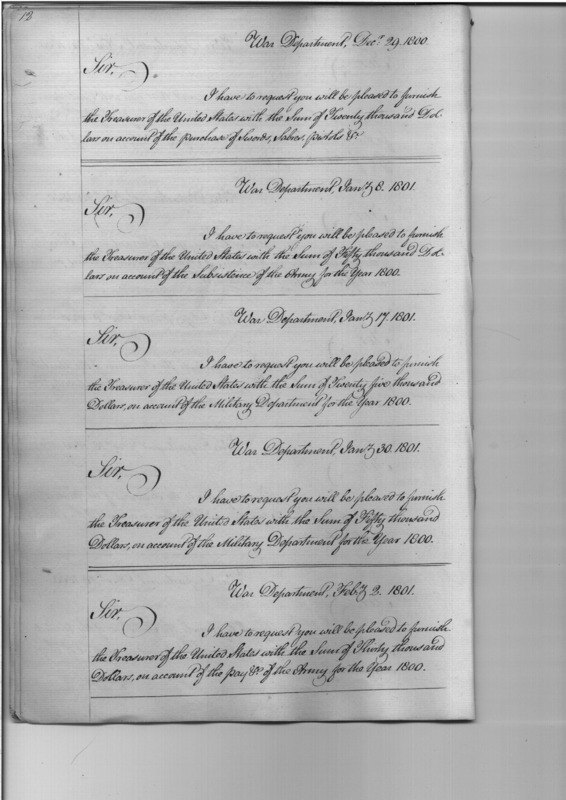 12
War Department, Decr. 29. 1800.
Sir,
I have to request you will be pleased to furnish
the Treasurer of the United States with the Sum of Twenty thousand Dol-
lars on account of the purchase of Swords, Sabres, pistols &c
War Department, Jany. 8. 1801.
Sir,
I have to request you will be pleased to furnish
the Treasurer of the United States with the Sum of Fifty thousand Dol-
lars on account of the Subsistence of the Army for the Year 1800.
War Department, Jany. 17. 1801.
Sir,
I have to request you will be pleased to furnish
the Treasurer of the United States with the Sum of Twenty five thousand
Dollars, on account of the Military Department for the Year 1800.
War Department, Jany. 30. 1801.
Sir,
I have to request you will be pleased to furnish
the Treasurer of the United States with the Sum of Fifty thousand
Dollars, on account of the Military Department for the Year 1800.
War Department, Feby. 2. 1801.
Sir,
I have to request you will be pleased to furnish
the Treasurer of the United States with the Sum of Thirty thousand
Dollars, on account of the pay &c of the Army for the Year 1800.